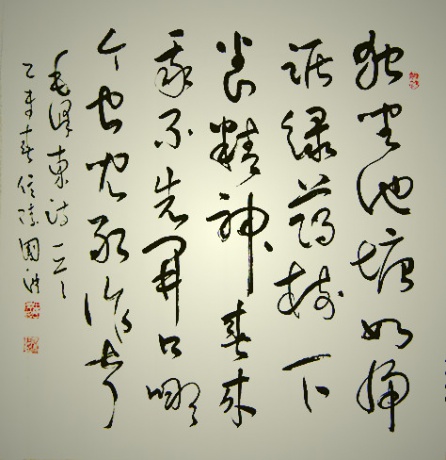 独坐池塘如虎
踞绿荫树下
养精神春来
我不先開口哪
个虫儿敢作声
毛泽东诗一首
乙未春信陵国